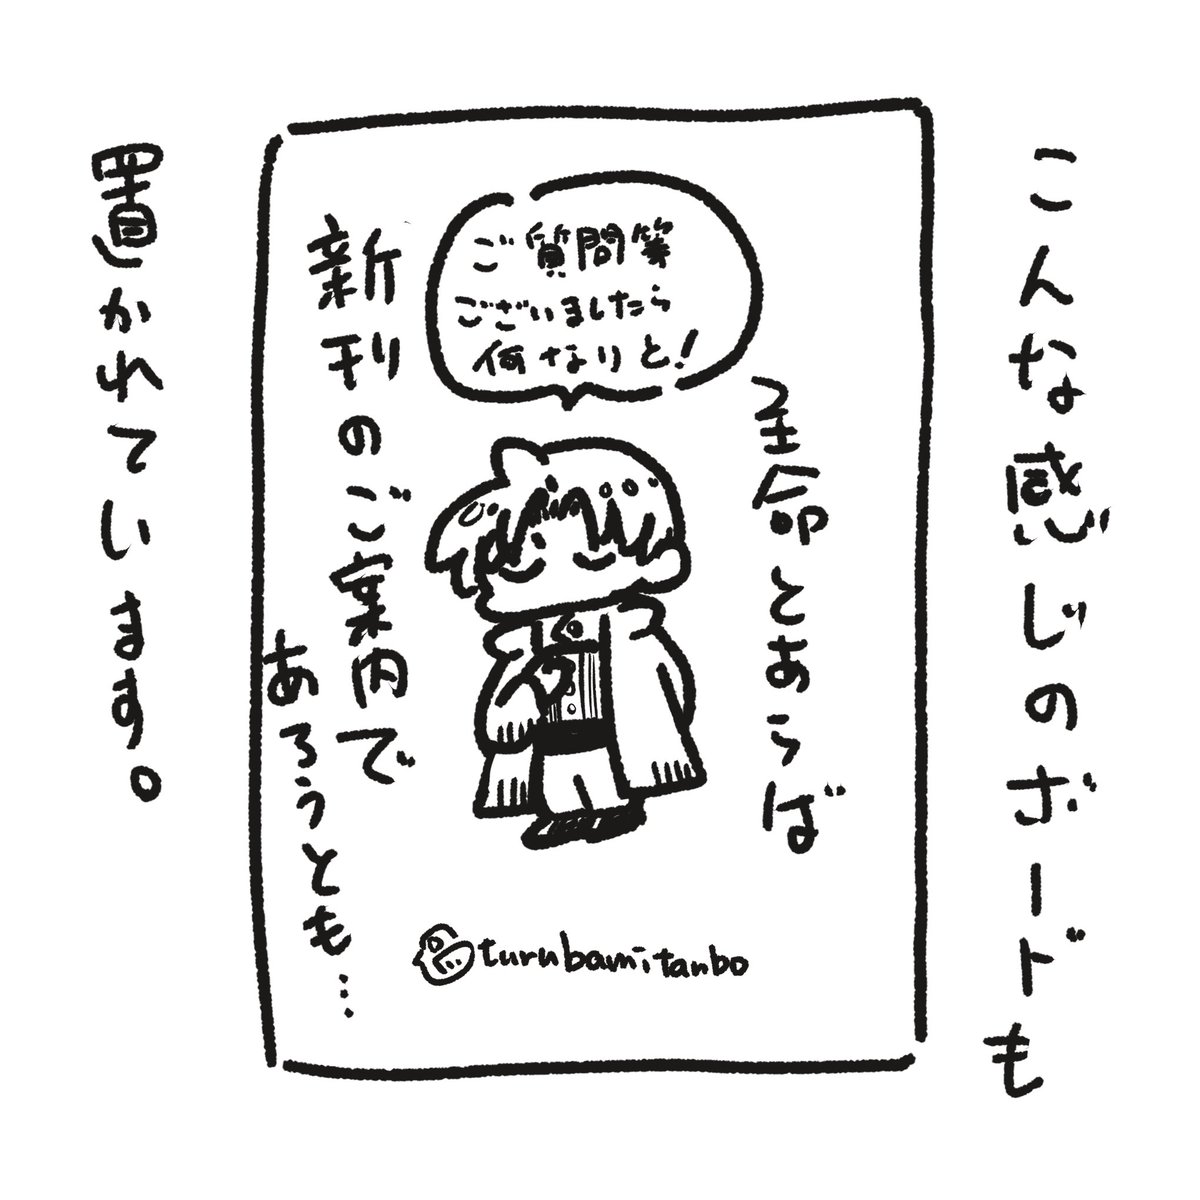 こんな感じのボードも
ご質問等
ございましたら
何なりと!
主命とあらば
新刊のご案内で
あろうとも…
turubamitanbo
置かれています。